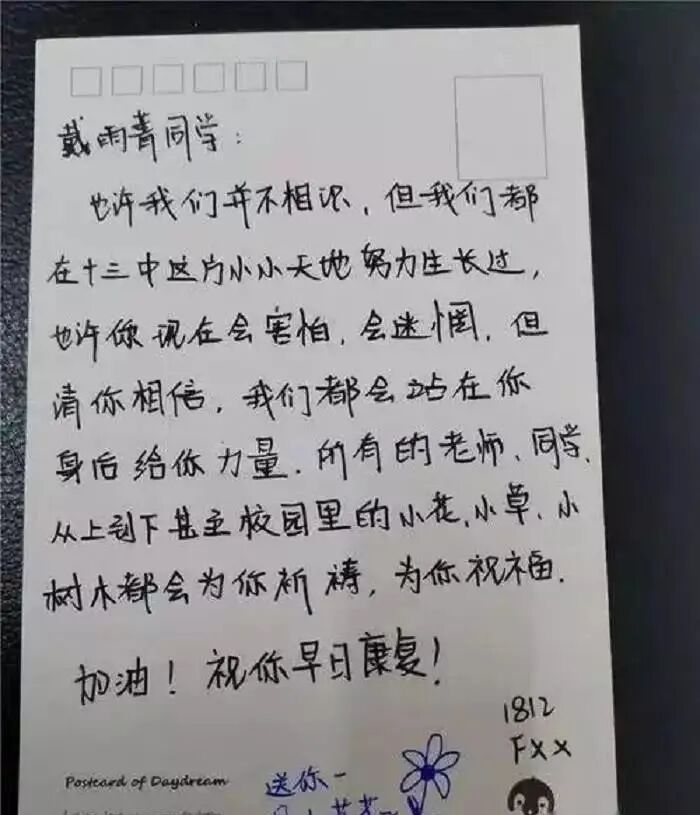 戴雨菁同学:
也许我们并不相识,但我们都
在十三中这片小小天地努力生长过,
也许你现在会害怕,会迷惘,但
请你相信,我们都会站在你
身后给你力量.所有的老师、同学、
从上到下甚至校园里的小花、小草、小
树木都会为你祈祷,为你祝福.
加油!祝你早日康复!
1812
Fxx
Postcard of Daydream
送你一